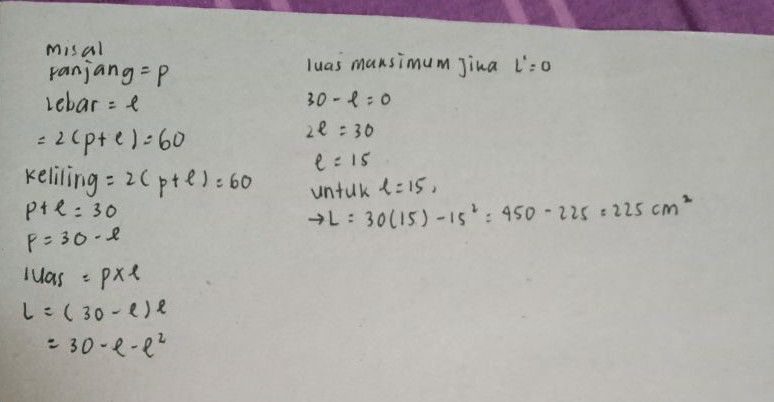 misal
panjang = p
lebar = l
= 2(p+l) = 60
Keliling = 2(p+l) = 60
p+l = 30
p = 30 - l
luas = p x l
L = (30 - l)l
= 30 - l - l²
luas maksimum jika L' = 0
30 - l = 0
2l = 30
l = 15
untuk l = 15,
→ L = 30(15) - 15² = 450 - 225 = 225 cm²